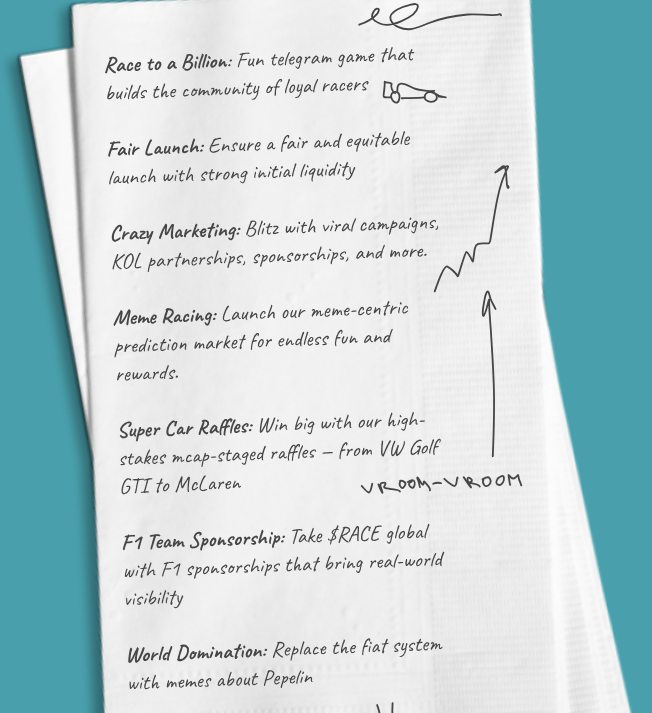 Race to a Billion: Fun telegram game that
builds the community of loyal racers
Fair Launch: Ensure a fair and equitable
launch with strong initial liquidity
Crazy Marketing: Blitz with viral campaigns,
KOL partnerships, sponsorships, and more.
Meme Racing: Launch our meme-centric
prediction market for endless fun and
rewards.
Super Car Raffles: Win big with our high-
stakes mcap-staged raffles – from VW Golf
GTI to McLaren
VROOM-VROOM
F1 Team Sponsorship: Take $RACE global
with F1 sponsorships that bring real-world
visibility
World Domination: Replace the fiat system
with memes about Pepelin